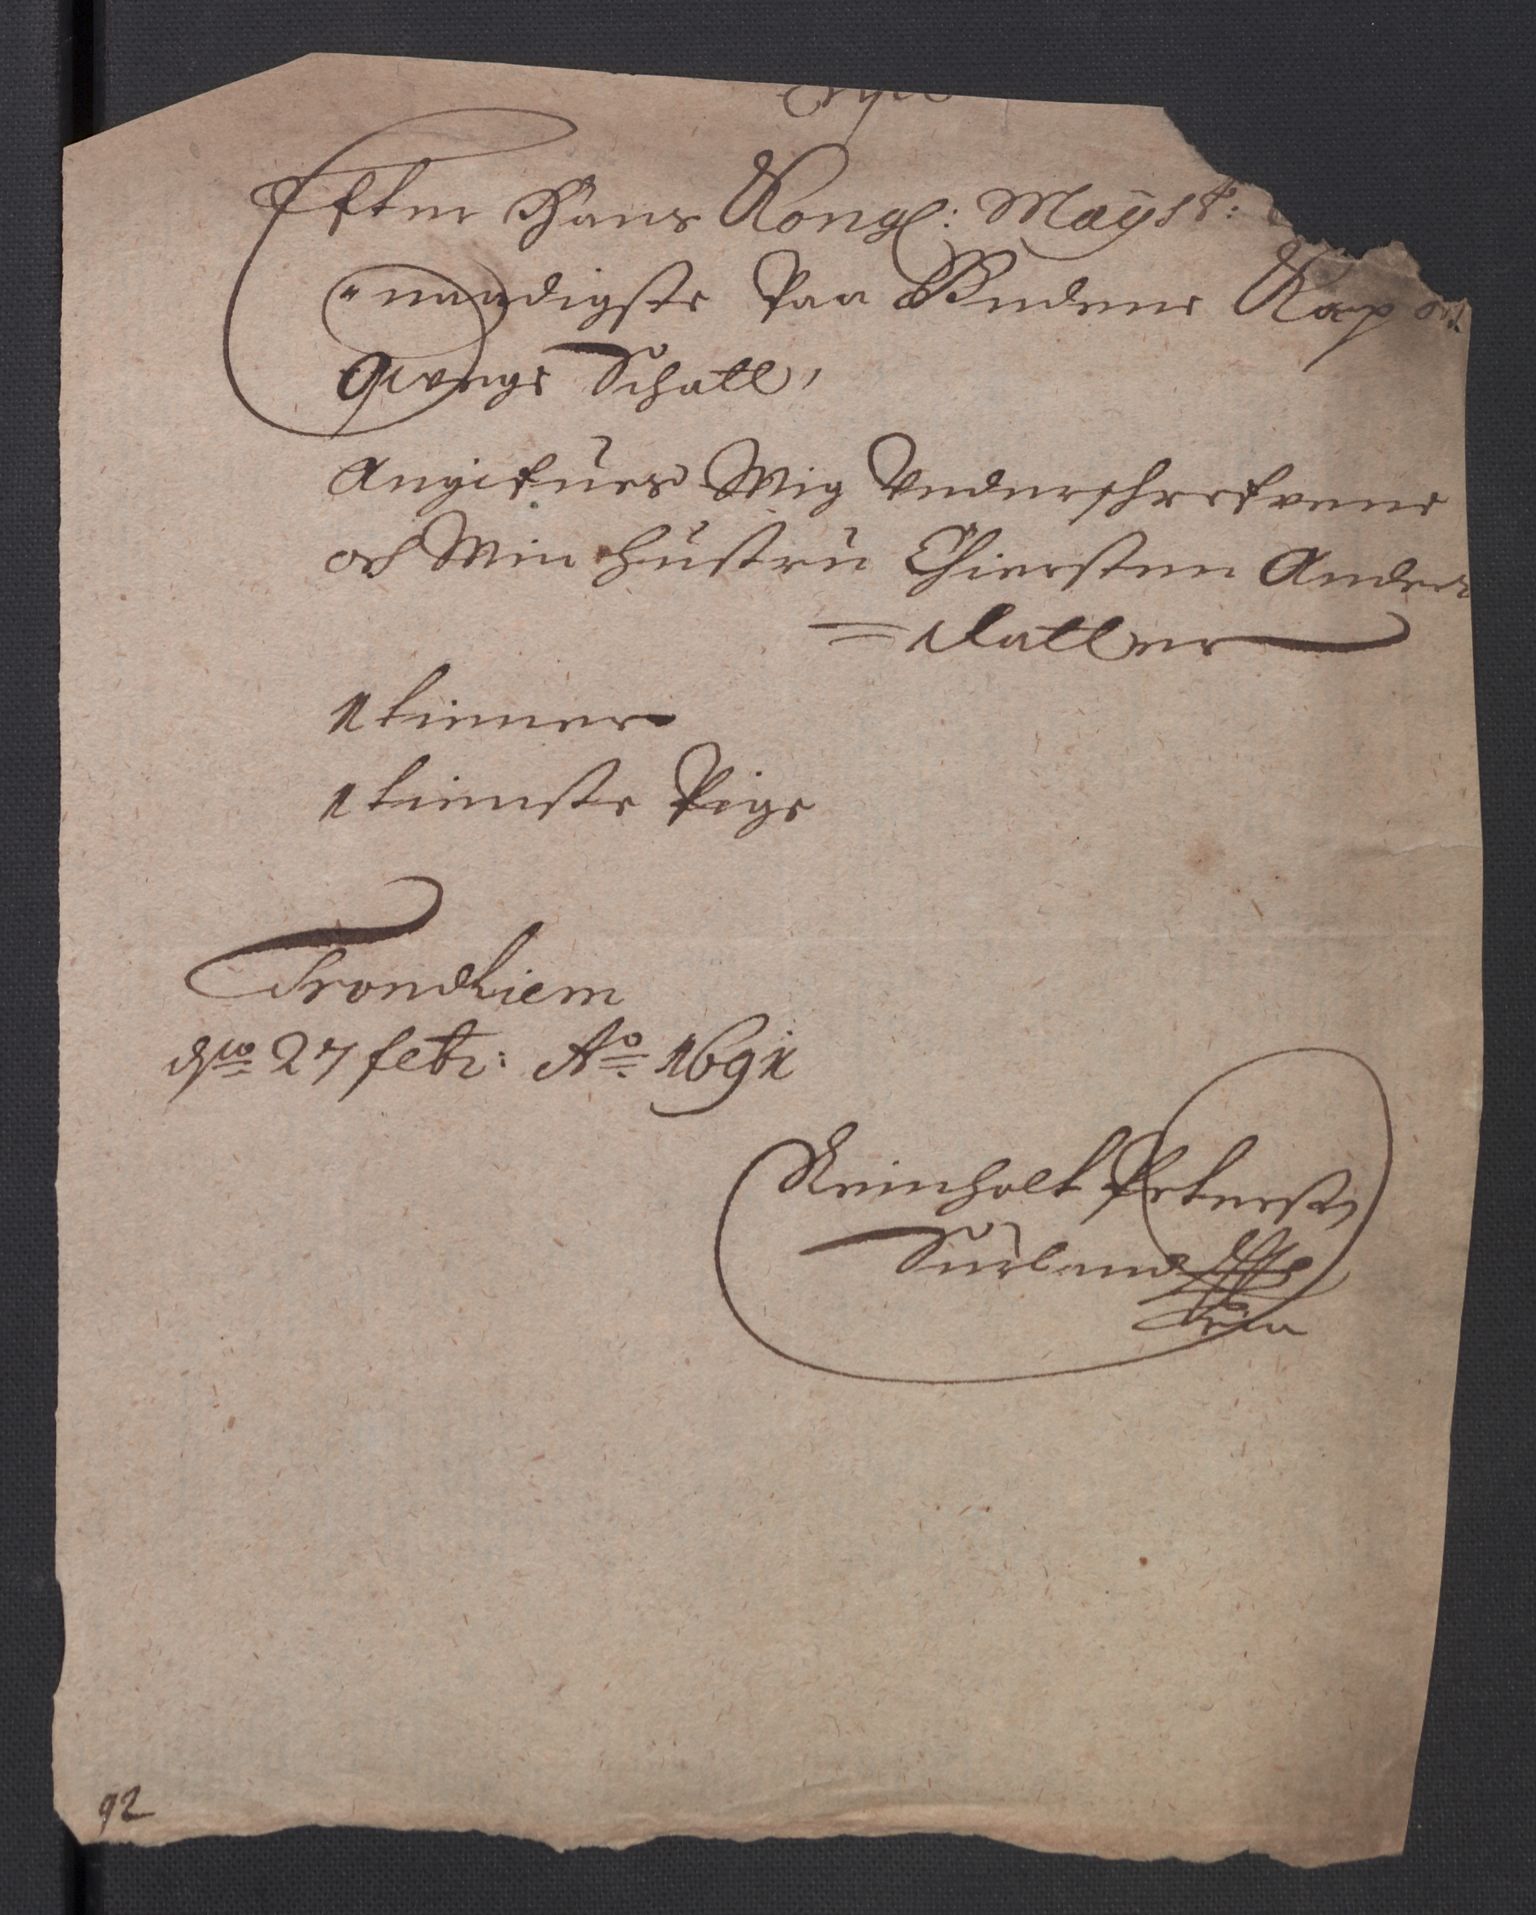 Efter Hans Kongl: Mayst:
naadigste Paa Budene Kop och
Qvegs Schatt,
Angifues Mig Underschrefvene
och Min Hustru Chiersten Anders
=datter
1 tienner
1 tienste Pige
Trondhiem
dto 27 febr: Ao 1691
Reinholt Peterss
92